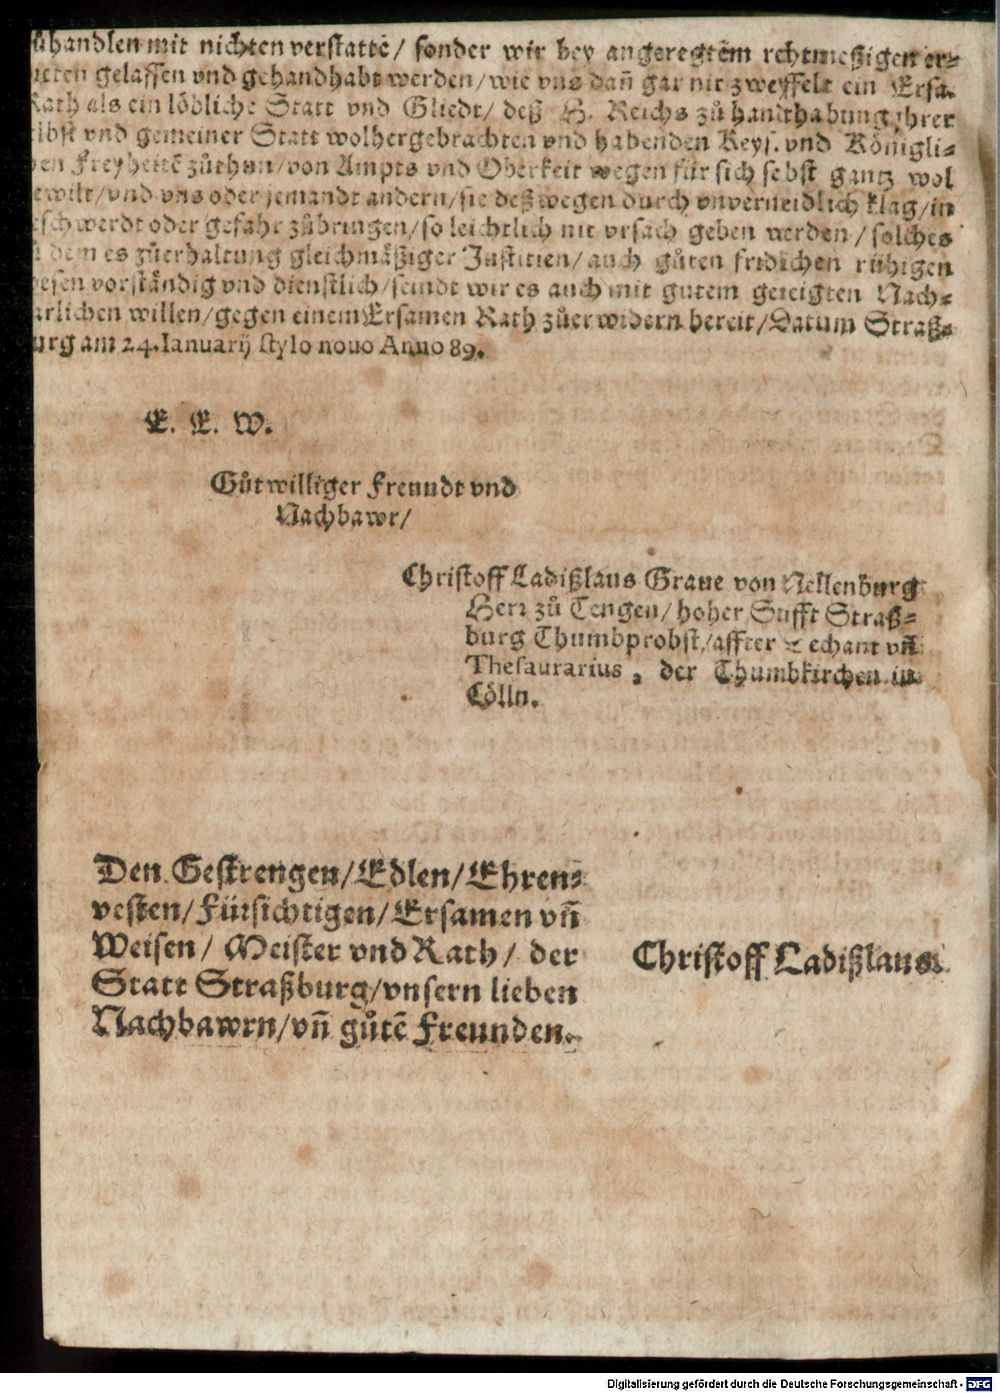 zůhandlen mit nichten verstattē / sonder wir bey angeregtem rehtmessigen er-
bieten gelassen vnd gehandhabt werden / wie vns dañ gar nit zweyffelt ein Ersa-
Rath als ein löbliche Statt vnd Gliedt / deß H. Reichs zů handthabung ihrer
selbst vnd gemeiner Statt wolhergebrachten vnd habenden Keys. vnd Königli-
chen Freyheitē zůthun / von Ampts vnd Oberkeit wegen für sich selbst gantz wol
gewilt / vnd vns oder jemandt andern / sie deßwegen durch vnvermeidlich klag / in
beschwerdt oder gefahr zůbringen / so leichtlich nit vrsach geben werden / solches
dem es zůerhaltung gleichmäßiger Justitien / auch gůten fridlichen rühigen
wesen vorständig vnd dienstlich / seindt wir es auch mit gutem geneigten Nach-
barlichen willen / gegen einem Ersamen Rath zůerwidern bereit / Datum Straß-
burg am 24. Ianuarij stylo nouo Anno 89.
E. E. W.
Gůtwilliger Freundt vnd
Nachbawr /
Christoff Ladißlaus Graue von Nellenburg
Herr zů Tengen / hoher Stifft Straß-
burg Thumbprobst / affter Dechant vñ
Thesaurarius, der Thumbkirchen in
Cölln.
Den Gestrengen / Edlen / Ehren-
vesten / Fürsichtigen / Ersamen vñ
Weisen / Meister vnd Rath / der
Statt Straßburg / vnsern lieben
Nachbawrn / vñ gůtē Freunden.
Christoff Ladißlaus.
Digitalisierung gefördert durch die Deutsche Forschungsgemeinschaft - DFG